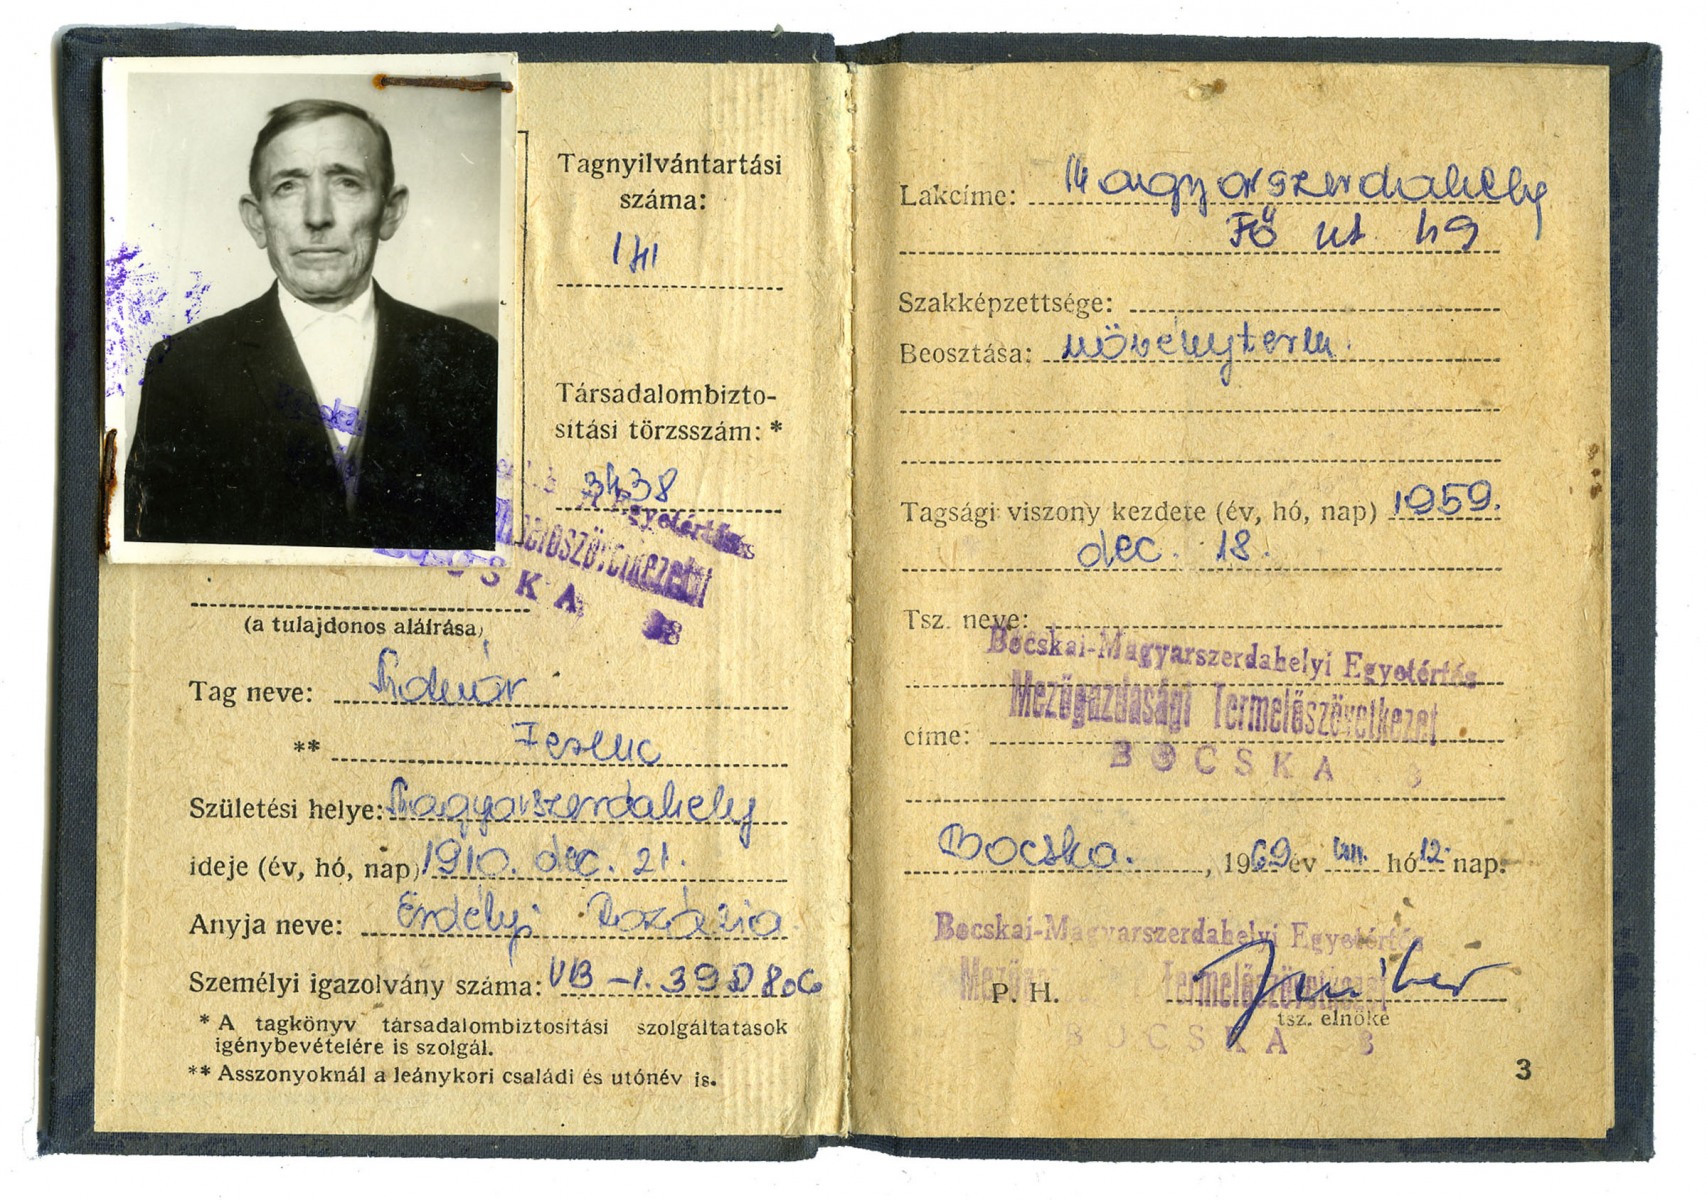 Tagnyilvántartási
száma:
141
Társadalombizto-
sítási törzsszám: *
3438
Egyetértés
Termelőszövetkezet
BOCSKA
(a tulajdonos aláírása)
Tag neve: Molnár
** Ferenc
Születési helye: Magyarszerdahely
ideje (év, hó, nap) 1910. dec. 21.
Anyja neve: Erdélyi Rozália
Személyi igazolvány száma:
* A tagkönyv társadalombiztosítási szolgáltatások
igénybevételére is szolgál.
** Asszonyoknál a leánykori családi és utónév is.
Lakcíme: Magyarszerdahely
Fő út 49
Szakképzettsége:
Beosztása: növényterm.
Tagsági viszony kezdete (év, hó, nap) 1959.
dec. 18.
Tsz. neve:
Bocskai-Magyarszerdahelyi Egyetértés
Mezőgazdasági Termelőszövetkezet
címe:
BOCSKA
Bocska., 1969 év VIII. hó 12. nap.
Bocskai-Magyarszerdahelyi Egyetértés
Termelőszövetkezet
P. H.
tsz. elnöke
BOCSKA
3